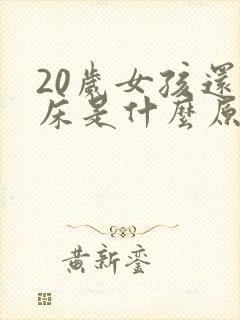 20歲女孩還
床是什麼原
黃新鑾